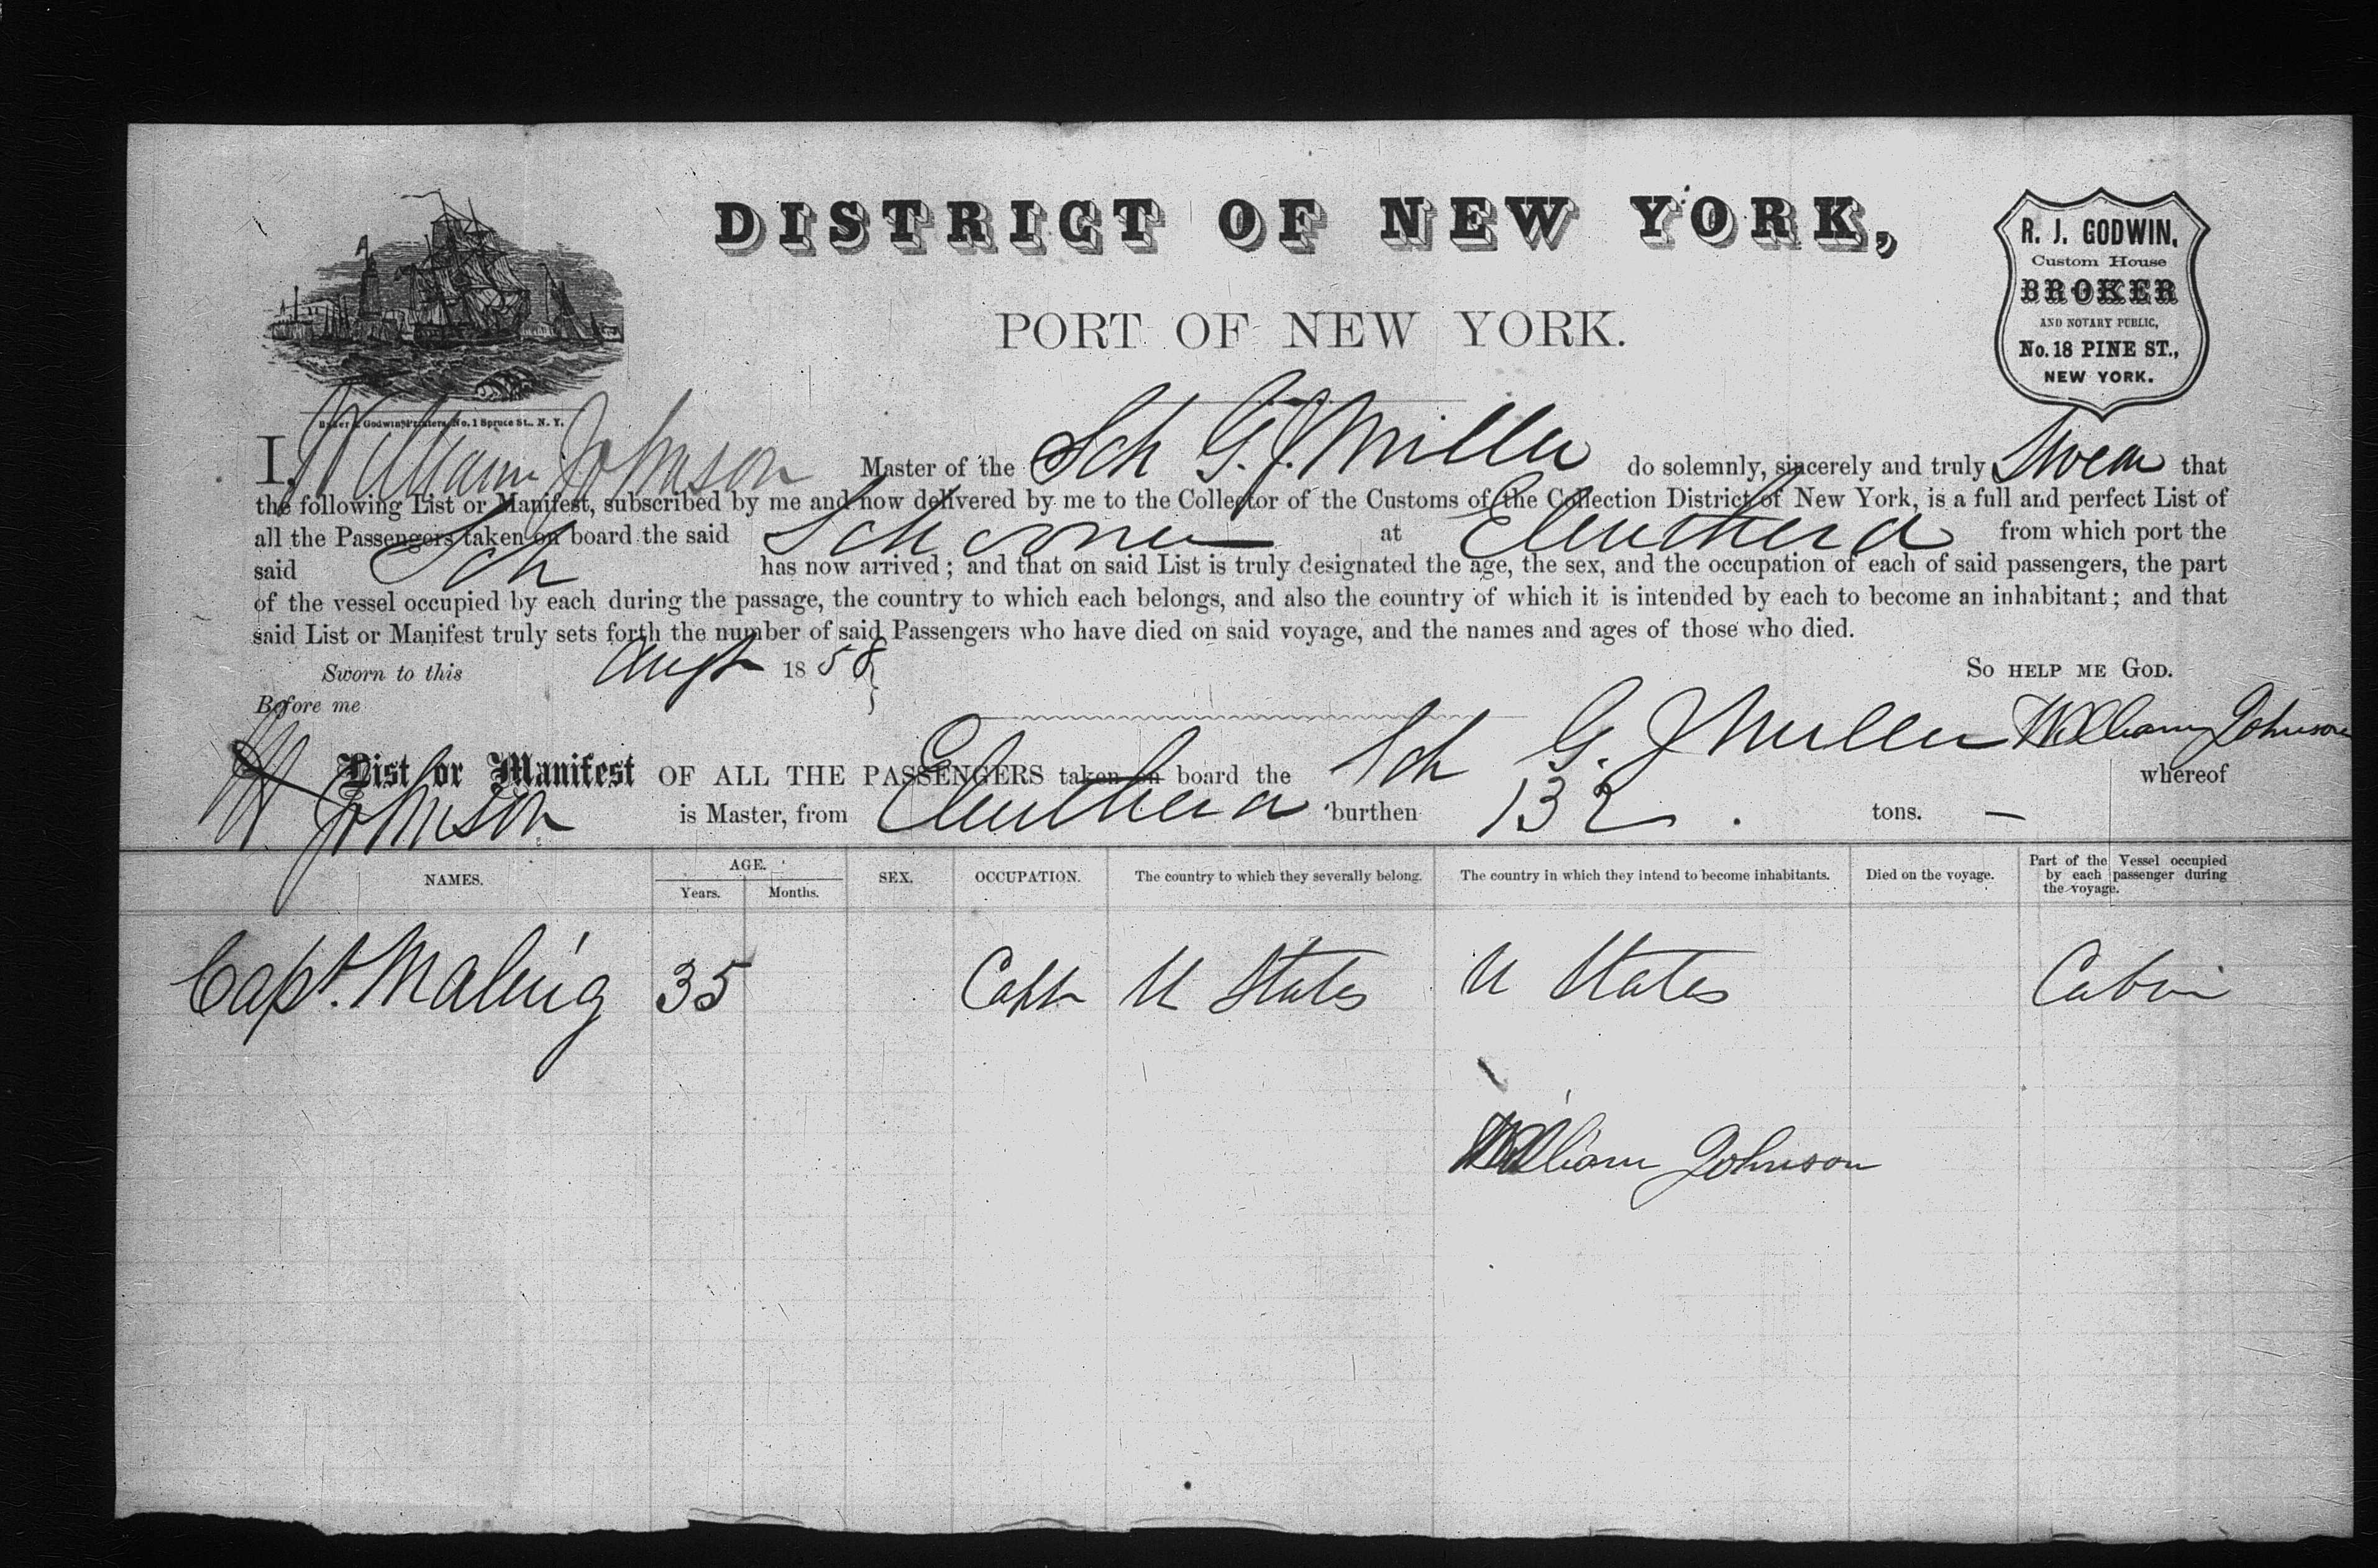 DISTRICT OF NEW YORK,
PORT OF NEW YORK.
R. J. GODWIN,
Custom House
BROKER
AND NOTARY PUBLIC,
No. 18 PINE ST.,
NEW YORK.
Baker & Godwin, Printers, No. 1 Spruce St., N. Y.
I, William Johnson Master of the Sch G. J. Miller do solemnly, sincerely and truly Swear that
the following List or Manifest, subscribed by me and now delivered by me to the Collector of the Customs of the Collection District of New York, is a full and perfect List of
all the Passengers taken on board the said Schooner at Eleuthera from which port the
said Sch has now arrived; and that on said List is truly designated the age, the sex, and the occupation of each of said passengers, the part
of the vessel occupied by each during the passage, the country to which each belongs, and also the country of which it is intended by each to become an inhabitant; and that
said List or Manifest truly sets forth the number of said Passengers who have died on said voyage, and the names and ages of those who died.
Sworn to this Augt 1858 So help me God.
Before me William Johnson
List or Manifest OF ALL THE PASSENGERS taken on board the Sch G. J Miller whereof
W Johnson is Master, from Eleuthera burthen 132 tons.
NAMES. AGE. Years. Months. SEX. OCCUPATION. The country to which they severally belong. The country in which they intend to become inhabitants. Died on the voyage. Part of the Vessel occupied by each passenger during the voyage.
Capt. 35 Capt U States U States Cabin
William Johnson